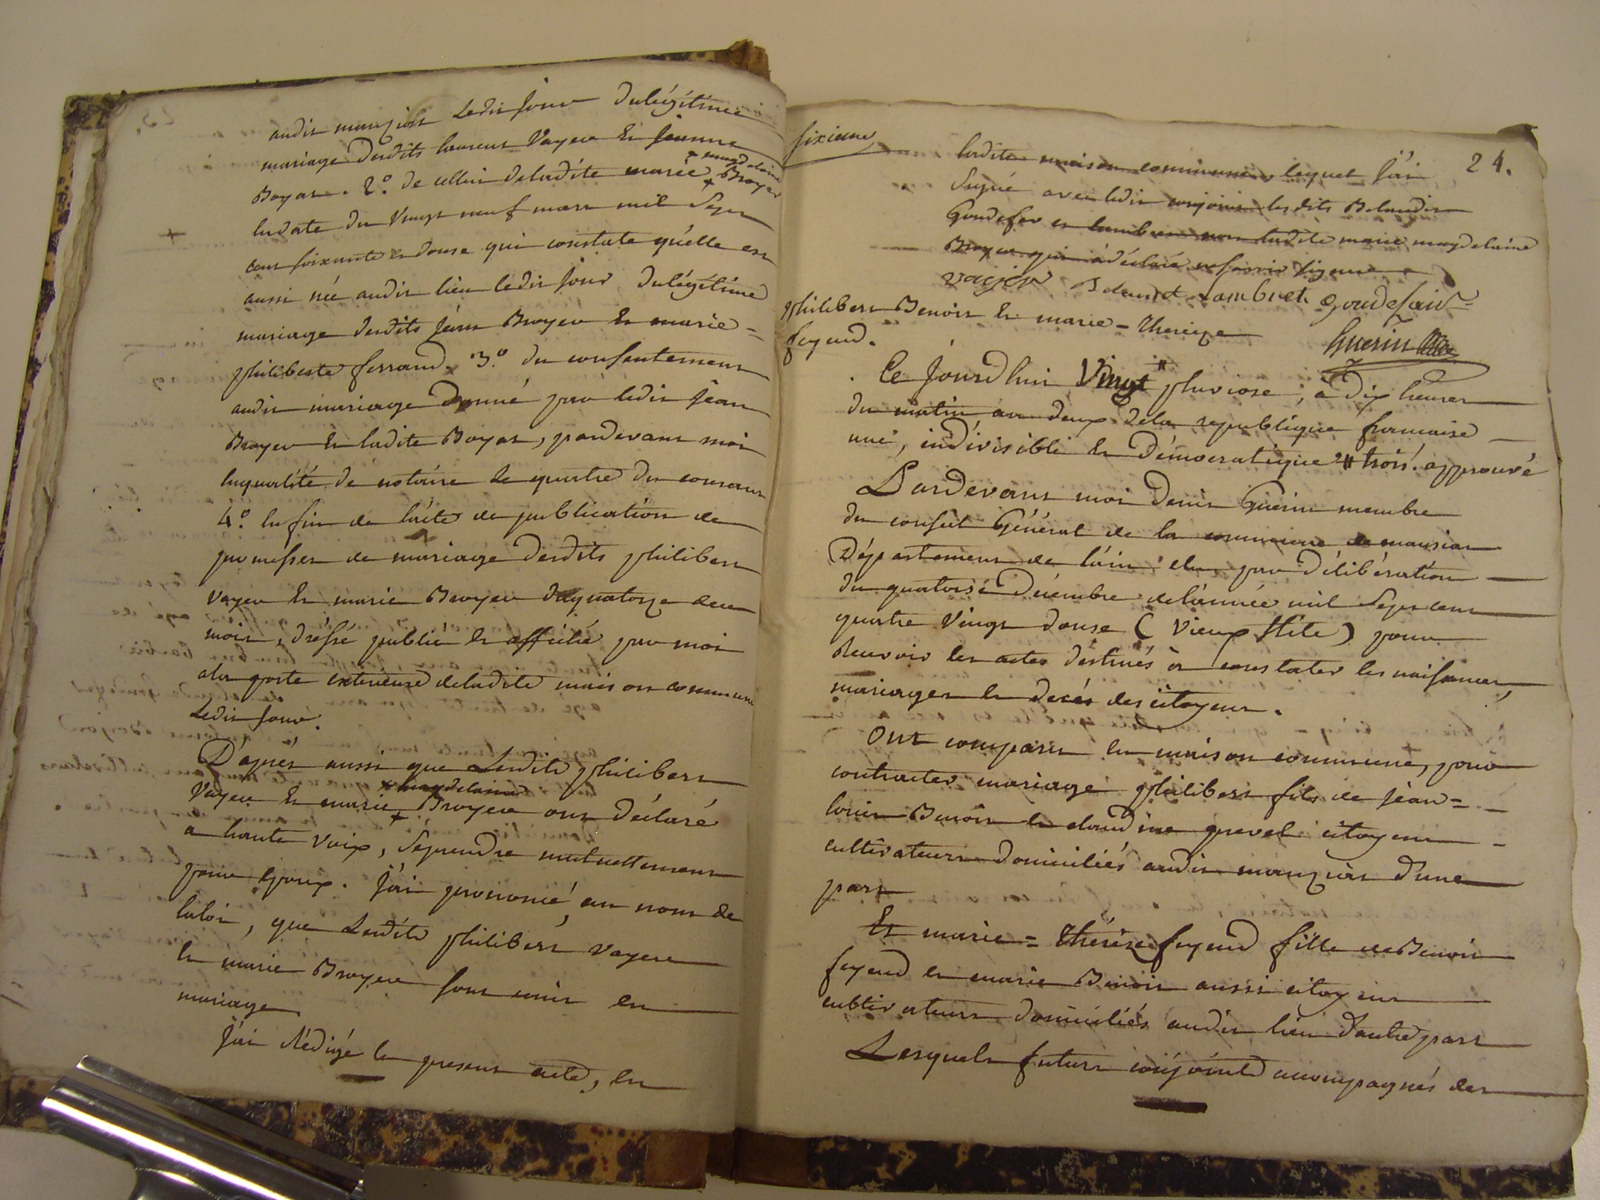 audit manziat ledit jour du légitime
mariage desdits laurent Vayer et Jeanne
Boyat. 2.° de celui de ladite marie + magdelaine Broyer
ladate du Vingt neuf mars mil Sept
cent soixante & douse qui constate qu'elle est
aussi née audit lieu ledit jour du légitime
mariage desdits Jean Broyer et marie=
philiberte ferrand. 3.° du consentement
audit mariage Donné par ledit Jean
Broyer et ladite Boyat, pardevant moi
en qualité de notaire le quatre du courant
4.° enfin de l'acte de publication de
promesses de mariage desdits philibert
vayer et marie Broyer du quatorze
mois, dréssé publié et affiché par moi
ala porte extérieure deladite maison commune
Ledit jour.
D'aprés aussi que Lesdits philibert
Vayer et marie + magdelaine Broyer ont déclaré
a haute voix, Séprendre mutuellement
pour Epoux. J'ai prononcé au nom de
laloi, que Lesdits philibert vayer
et marie Broyer sont unis en
mariage
J'ai Rédigé le present acte, en
sixieme
24.
ladite maison commune lequel j'ai
Signé avec ledit conjoint lesdits
Gondefer et lambret non ladite marie magdelaine
Broyer qui a déclaré ne savoir signer
vayer lambret
Guerin
philibert Benoit et marie=thereze
feyeud.
Ce Jourd'hui Vingt " pluviose, à Dix heures
du matin an deux dela republique francaise
une, indivisible et Démocratique " trois. approuvé
Pardevant moi Denis Guerin membre
du conseil Général de la commune de manziat
Département de l'ain élu par Délibération
du quatorse Décembre del'année mil Sept cent
quatre Vingt douse (Vieux Stile) pour
Recevoir les actes déstinés à constater les naissances,
mariages et decés des citoyens.
Ont comparu en maison commune, pour
contracter mariage philibert fils de jean=
louis Benoit et claudine prevel citoyens
cultivateurs domiciliés audit manziat d'une
part
Et marie=thérèse feyeud fille de Benoit
feyeud et marie Benoit aussi citoyens
cultivateurs domiciliés audit lieu d'autre part
Lesquels futurs conjoints accompagnés des